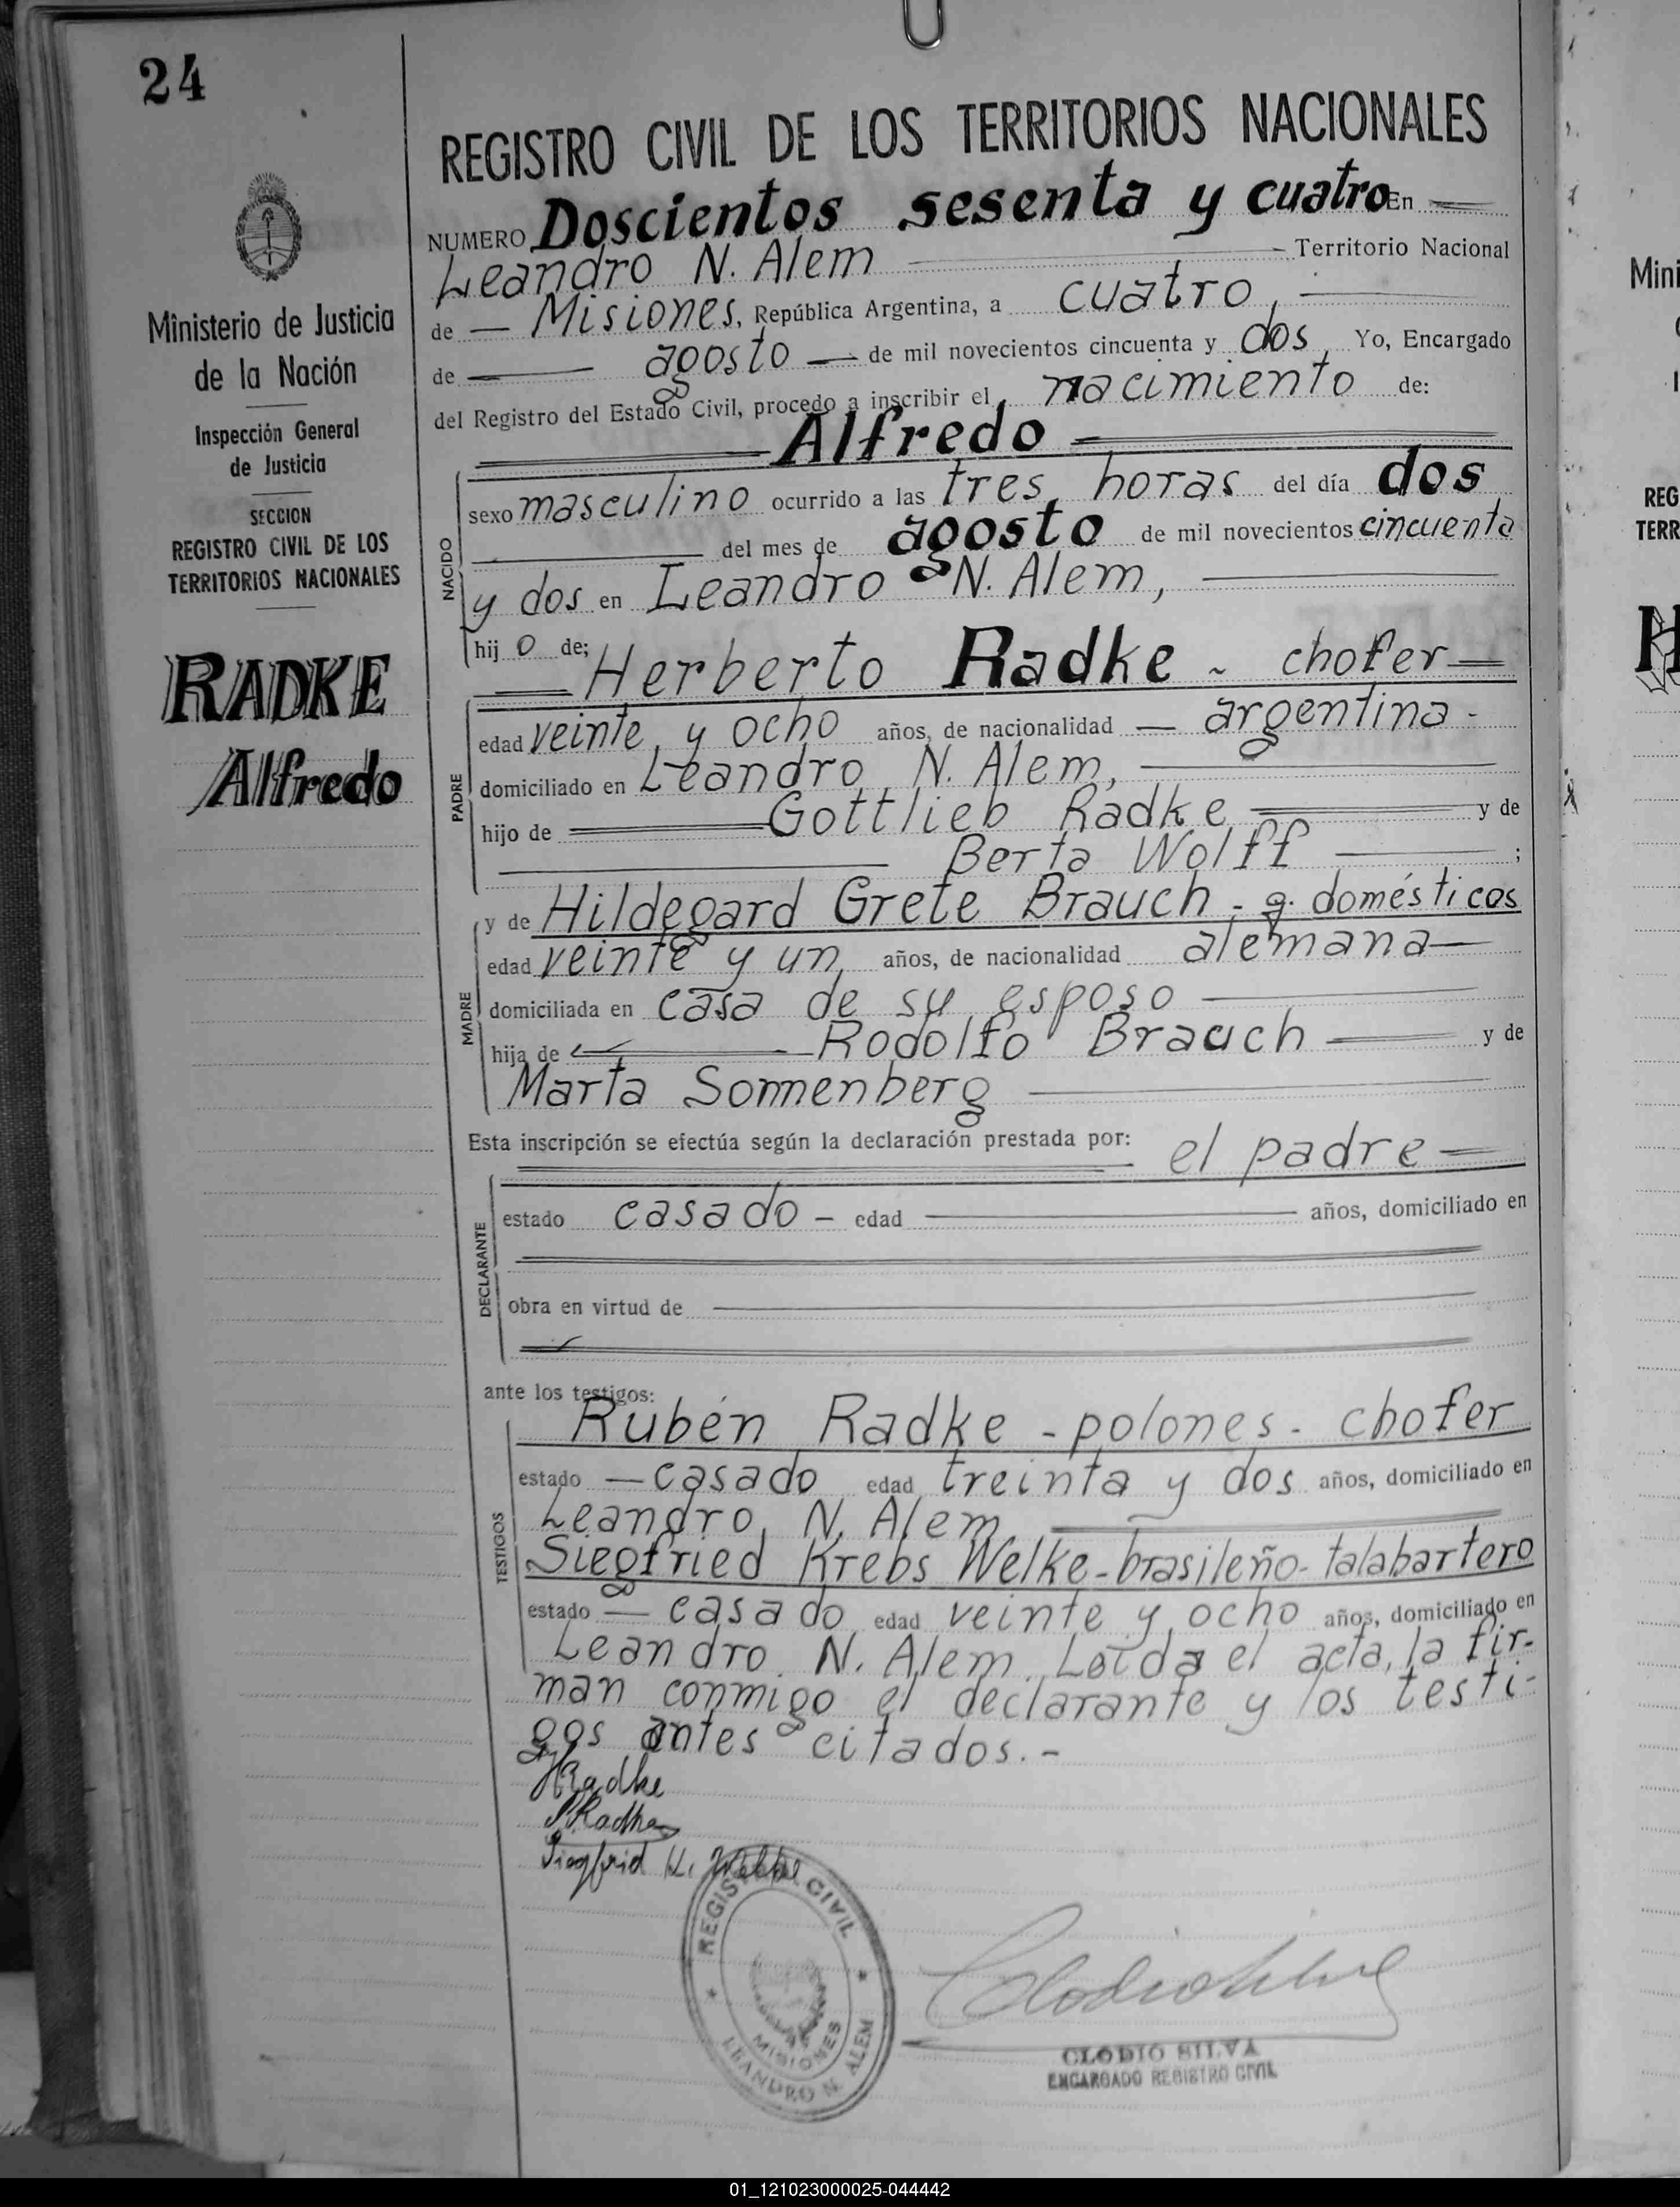 24
Ministerio de Justicia
de la Nación
Inspección General
de Justicia
SECCION
REGISTRO CIVIL DE LOS
TERRITORIOS NACIONALES
RADKE
Alfredo
REGISTRO CIVIL DE LOS TERRITORIOS NACIONALES
NUMERO Doscientos sesenta y cuatro En
Leandro N. Alem Territorio Nacional
de Misiones, República Argentina, a cuatro,
de agosto de mil novecientos cincuenta y dos, Yo, Encargado
del Registro del Estado Civil, procedo a inscribir el nacimiento de:
Alfredo
NACIDO
sexo masculino ocurrido a las tres horas del día dos
del mes de agosto de mil novecientos cincuenta
y dos en Leandro N. Alem,
hij o de;
Herberto Radke - chofer
PADRE
edad veinte y ocho años, de nacionalidad argentina -
domiciliado en Leandro N. Alem,
hijo de Gottlieb Radke y de
Berta Wolff ;
MADRE
y de Hildegard Grete Brauch - q. domésticos
edad veinte y un años, de nacionalidad alemana
domiciliada en casa de su esposo
hija de Rodolfo Brauch y de
Marta Sonnenberg
Esta inscripción se efectúa según la declaración prestada por:
el padre
DECLARANTE
estado casado - edad años, domiciliado en
obra en virtud de
ante los testigos:
TESTIGOS
Rubén Radke - polones - chofer
estado casado edad treinta y dos años, domiciliado en
Leandro N. Alem
Siegfried Krebs Welke - brasileño - talabartero
estado casado edad veinte y ocho años, domiciliado en
Leandro N. Alem. Loída el acta, la fir-
man conmigo el declarante y los testi-
gos antes citados.-
HRadke
Radke
Siegfrid K. Welke
REGISTRO CIVIL
MISIONES
LEANDRO N. ALEM
Clodio Silva
CLODIO SILVA
ENCARGADO REGISTRO CIVIL
Mini
REG
TERR
01_121023000025-044442